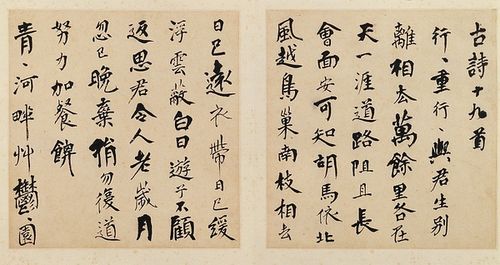 古詩十九首
行〻重行〻與君生別
離相去萬餘里各在
天一涯道路阻且長
會面安可知胡馬依北
風越鳥巢南枝相去
日已遠衣帶日已緩
浮雲蔽白日遊子不顧
返思君令人老歲月
忽已晚棄捐勿復道
努力加餐飰
青〻河畔艸鬱〻園